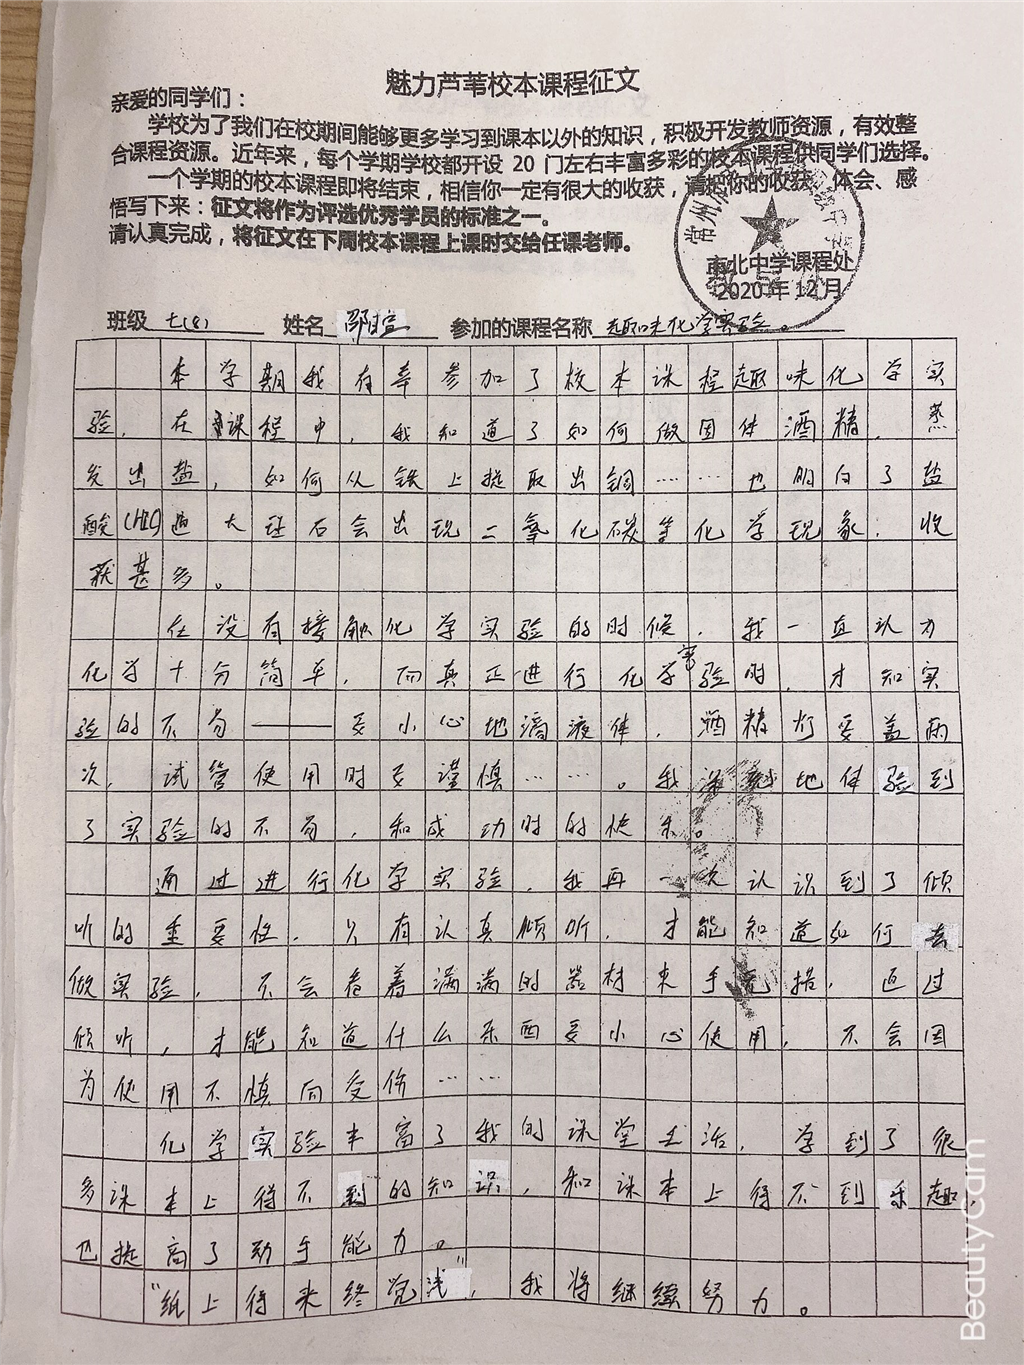 魅力芦苇校本课程征文
亲爱的同学们：
学校为了我们在校期间能够更多学习到课本以外的知识，积极开发教师资源，有效整
合课程资源。近年来，每个学期学校都开设 20 门左右丰富多彩的校本课程供同学们选择。
一个学期的校本课程即将结束，相信你一定有很大的收获，请把你的收获、体会、感
悟写下来：征文将作为评选优秀学员的标准之一。
请认真完成，将征文在下周校本课程上课时交给任课老师。
常州
南北中学课程处
2020年12月
班级 七(8) 姓名 邵 参加的课程名称 趣味化学实验。
本学期我有幸参加了校本课程趣味化学实
验，在课程中，我知道了如何做固体酒精，蒸
发出盐，如何从铁上提取出铜……也明白了盐
酸(HCl)遇大理石会出现二氧化碳等化学现象，收
获甚多。
在没有接触化学实验的时候，我一直认为
化学十分简单，而真正进行化学实验时，才知实
验的不易——要小心地滴液体，酒精灯要盖两
次，试管使用时要谨慎……。我深刻地体验到
了实验的不易，和成功时的快乐。
通过进行化学实验，我再一次认识到了倾
听的重要性，只有认真倾听，才能知道如何去
做实验，不会看着满满的器材束手无措，通过
倾听，才能知道什么东西要小心使用，不会因
为使用不慎而受伤……
化学实验丰富了我的课堂生活，学到了很
多课本上得不到的知识，和课本上得不到乐趣，
也提高了动手能力。
“纸上得来终觉浅”，我将继续努力。
BeautyCam